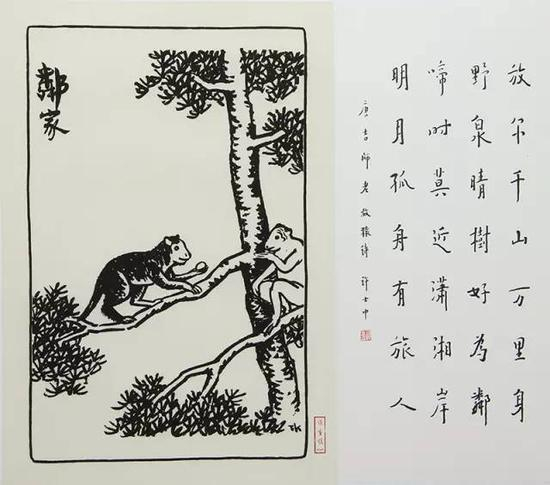 鄰家
放尔千山万里身
野泉晴樹好為鄰
啼时莫近瀟湘岸
明月孤舟有旅人
唐吉師老放猿詩 許士中
TK